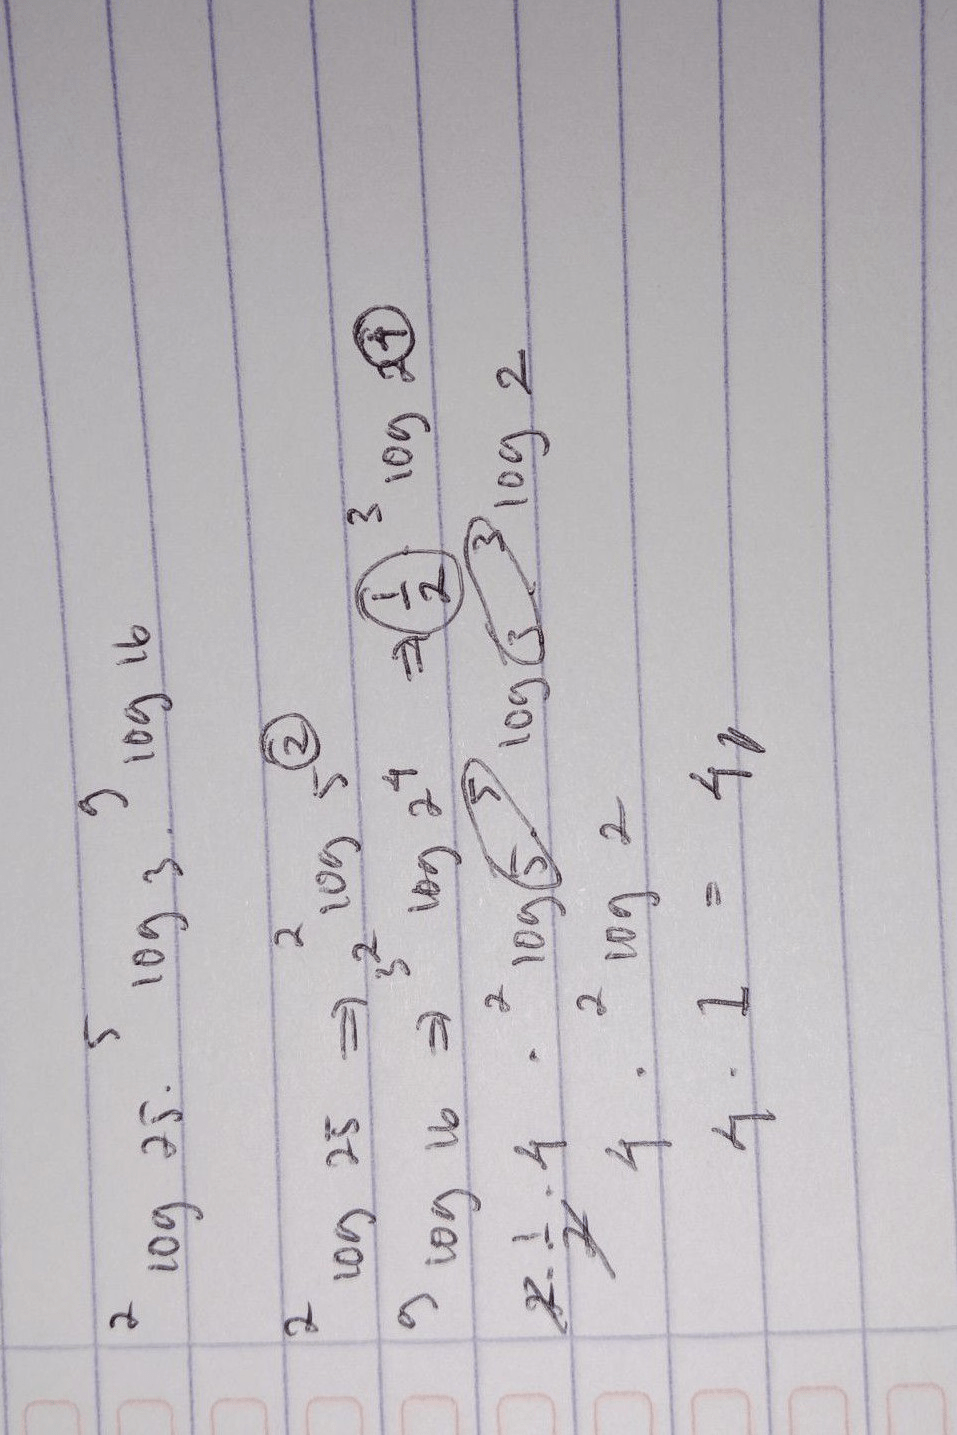 ²log 25 . ⁵log 3 . ⁹log 16
²log 25 ⇒ ²log 5²
⁹log 16 ⇒ ³²log 2⁴ ⇒ 1/2 . ³log 2⁴
2 . 1/2 . 4 . ²log 5 . ⁵log 3 . ³log 2
4 . ²log 2
4 . 1 = 4//